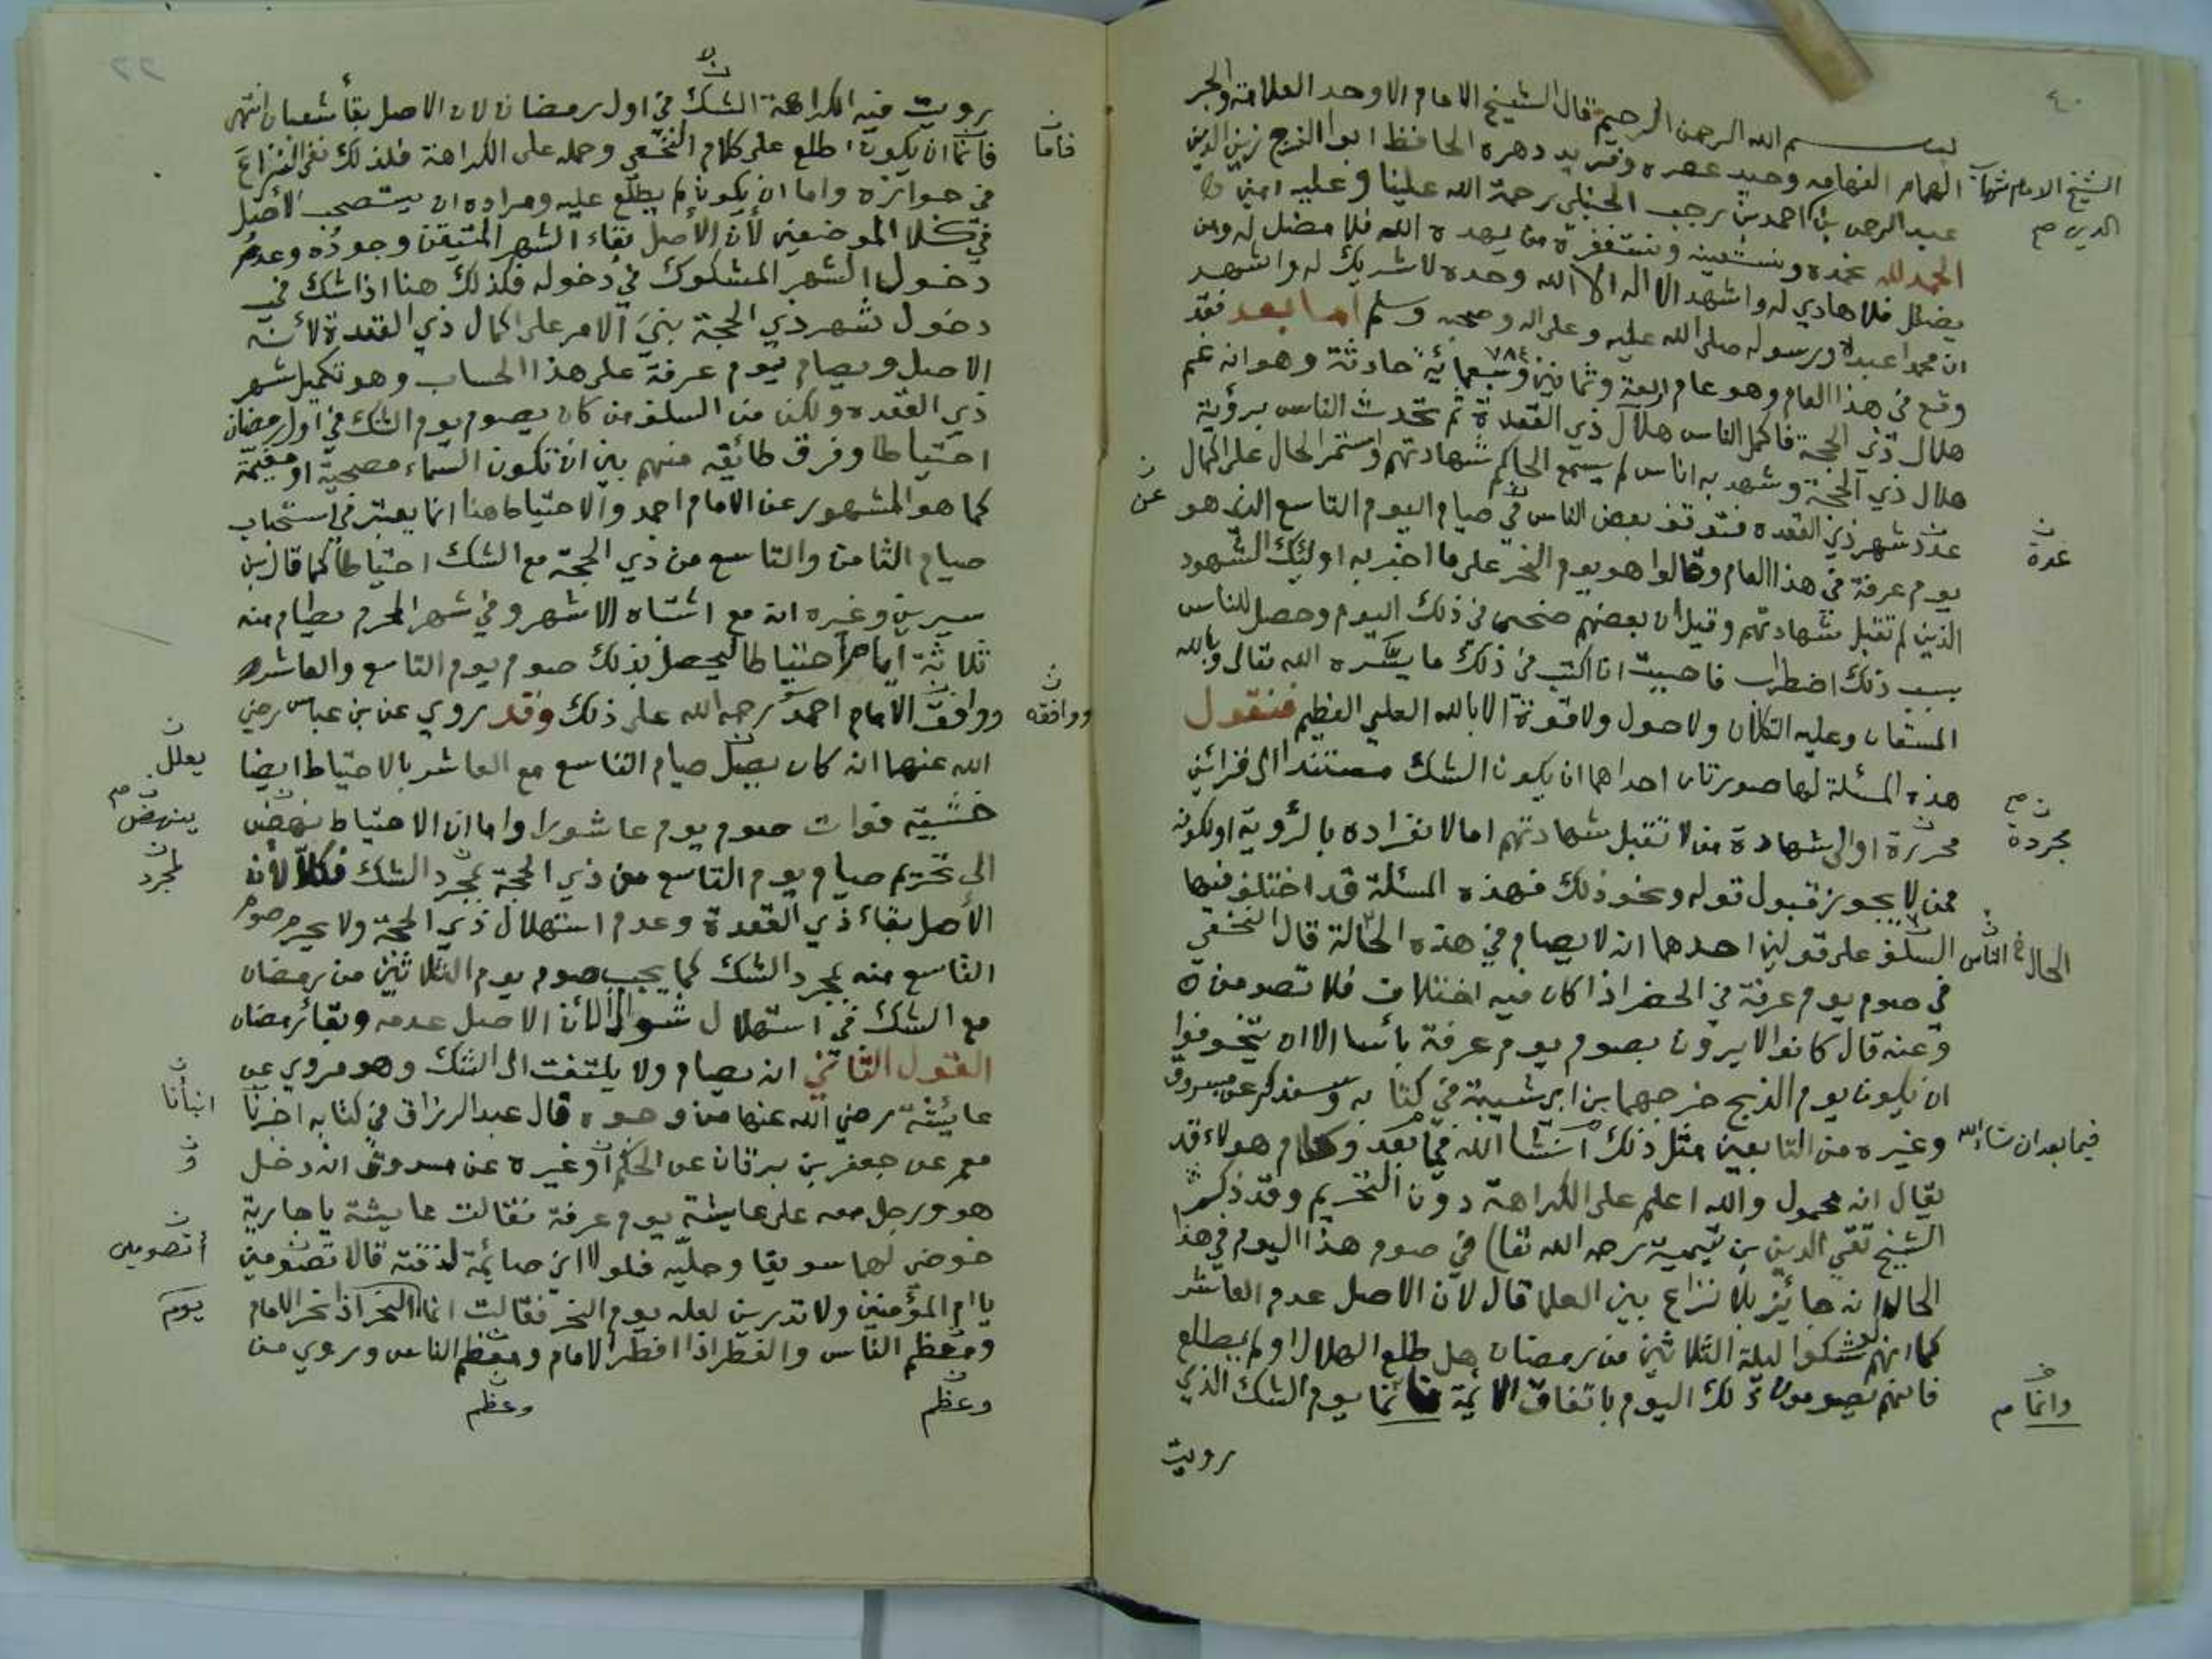 ٤٠
بسم الله الرحمن الرحيم قال الشيخ الامام الاوحد العلامة والحبر
الهمام الفهامه وحيد عصره وفريد دهره الحافظ ابوا الفرج زين الدين
الشيخ الامام شهاب الدين
عبد الرحمن بن احمد بن رجب الحنبلي رحمة الله علينا وعليه امين
الحمد لله نحمده ونستعينه ونستغفره من يهده الله فلا مضل له ومن
يضلل فلا هادي له واشهد الا اله الا الله وحده لا شريك له واشهد
ان محمدا عبده ورسوله صلى الله عليه وعلى اله وصحبه وسلم اما بعد فقد
وقع في هذا العام وهو عام اربعة وثمانين وسبعمائة ٧٨٤ حادثة وهو انه غم
هلال ذي الحجة فاكمل الناس هلال ذي القعدة ثم تحدث الناس برؤية
هلال ذي الحجة وشهد به اناس لم يسمع الحاكم شهادتهم واستمر الحال على اكمال
عدد شهر ذي القعده فتوقف بعض الناس في صيام اليوم التاسع الذي هو
عن
عدة
يوم عرفة في هذا العام وقالوا هو يوم النحر على ما اخبر به اولئك الشهود
الذين لم تقبل شهادتهم وقيل ان بعضهم ضحى في ذلك اليوم وحصل للناس
بسبب ذلك اضطراب فاحببت ان اكتب في ذلك ما يسره الله تعالى وبالله
المستعان وعليه التكلان ولا حول ولا قوة الا بالله العلي العظيم فنقول
هذه المسئلة لها صورتان احداهما ان يكون الشك مستندا الى قرائن
محررة او الى شهادة من لا تقبل شهادتهم اما لانفراده بالرؤية او لكونه
مجردة
ممن لا يجوز قبول قوله ونحو ذلك فهذه المسئلة قد اختلف فيها
السلف على قولين احدهما انه لا يصام في هذه الحالة قال النخعي
الحال الناس
في صوم يوم عرفة في الحضر اذا كان فيه اختلاف فلا تصومن
وعنه قال كانوا لا يرون بصوم يوم عرفة بائسا الا ان يتخوفوا
ان يكون يوم الذبح خرجهما بن ابي شيبة في كتابه وسنذكر عن مسروق
وغيره من التابعين مثل ذلك انشا الله فيما بعد وكلام هولاء قد
فيما بعد ان شاء الله
يقال انه محمول والله اعلم على الكراهة دون التحريم وقد ذكر
الشيخ تقي الدين بن تيمية رحمه الله تعا) في صوم هذا اليوم في هذا
الحاله انه جائز بلا نزاع بين العلما قال لان الاصل عدم العاشر
كما انهم لو شكوا ليلة الثلاثين من رمضان هل طلع الهلال او لم يطلع
فانهم يصومون ذلك اليوم باتفاق الايمة فانما يوم الشك الذي
وانما
رويت
٢٢
رويت فيه الكراهة الشك في اول رمضان لان الاصل بقأ شعبان انتهى
فأما ان يكون اطلع على كلام النخعي وحمله على الكراهة فلذلك نفى النزاع
فأما
في جوازه واما ان يكون لم يطلع عليه ومراده ان يستصحب الاصل
في كلا الموضعين لأن الأصل بقاء الشهر المتيقن وجوده وعدم
دخول الشهر المشكوك في دخوله فكذلك هنا اذا شك في
دخول شهر ذي الحجة بني الامر على اكمال ذي القعدة لأنه
الاصل ويصام يوم عرفة على هذا الحساب وهو تكميل شهر
ذي القعده ولكن من السلف من كان يصوم يوم الشك في اول رمضان
احتياطا وفرق طائفه منهم بين ان تكون السماء مصحية او مغيمة
كما هو المشهور عن الامام احمد والاحتياط هنا انما يعتبر في استحباب
صيام الثامن والتاسع من ذي الحجة مع الشك احتياطا كما قال بن
سيرين وغيره انه مع اشتباه الاشهر وفي شهر المحرم يصام منه
ثلاثة ايام احتياطا ليحصل بذلك صوم يوم التاسع والعاشر
ووافق الامام احمد رحمه الله على ذلك وقد روي عن بن عباس رضي
ووافقه
الله عنهما انه كان يصل صيام التاسع مع العاشر بالاحتياط ايضا
يعلل
خشية فوات صوم يوم عاشورا واما ان الاحتياط نهض
ينهض
الى تحريم صيام يوم التاسع من ذي الحجة بمجرد الشك فكلا لأن
لمجرد
الأصل بقاء ذي القعدة وعدم استهلال ذي الحجة ولا يحرم صوم
التاسع منه بمجرد الشك كما يجب صوم يوم الثلاثين من رمضان
مع الشك في استهلال شوال لأن الاصل عدمه وبقأ رمضان
القول الثاني انه يصام ولا يلتفت الى الشك وهو مروي عن
عايشة رضي الله عنها من وجوه قال عبد الرزاق في كتابه اخبرنا
انبأنا
معمر عن جعفر بن برقان عن الحكم او غيره عن مسروق انه دخل
و
هو ورجل معه على عايشة يوم عرفة فقالت عايشة يا جارية
خوضي لهما سويقا وحليه فلولا اني صائمة لذقته قالا تصومين
أتصومين
يا ام المؤمنين ولا تدرين لعله يوم النحر فقالت انما النحر اذا نحر الامام
يوم
ومعظم الناس والفطر اذا افطر الامام ومعظم الناس وروي من
وعظم
وعظم